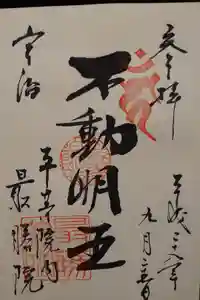 奉拝
平成二十八年
九月三十日
不動明王
宇治
平等院内
最勝院